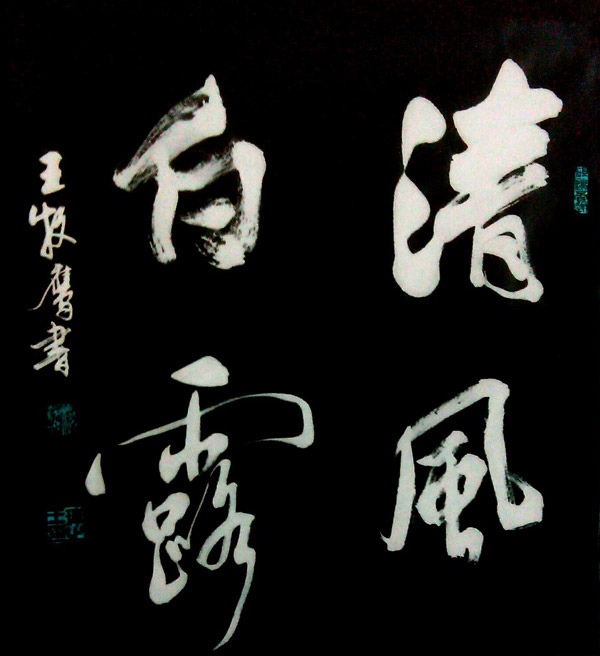 清風
白露
王牧鹰書